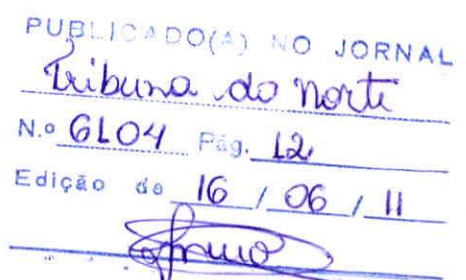 PUBLICADO(A) NO JORNAL
Tribuna do Norte
N.º 6104 Pág. 12
Edição de 16 / 06 / 11